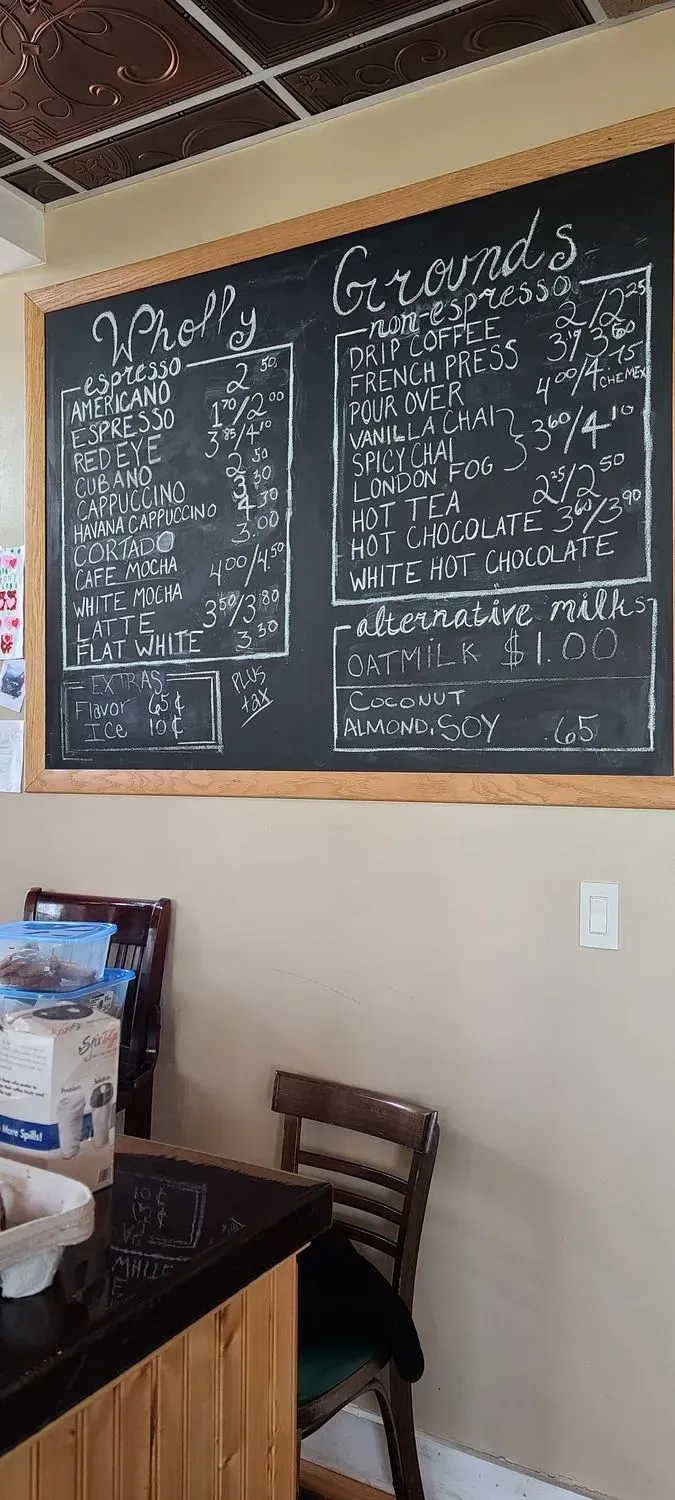 Wholly
Grounds
espresso
AMERICANO 2 50
ESPRESSO 1 70/2 00
RED EYE 3 85/4 10
CUBANO 2 50
CAPPUCCINO 3 30
HAVANA CAPPUCCINO 4 30
CORTADO 3.00
CAFE MOCHA
WHITE MOCHA 4 00/4.50
LATTE 3 50/3 80
FLAT WHITE 3.30
EXTRAS
Flavor 65¢
Ice 10¢
PLUS
tax
non-espresso
DRIP COFFEE 2/2 25
FRENCH PRESS
POUR OVER 4 00/4 75 CHEMEX
VANILLA CHAI
SPICY CHAI 3 60/4 10
LONDON FOG
HOT TEA 2 25/2 50
HOT CHOCOLATE 3 60/3 90
WHITE HOT CHOCOLATE
alternative milks
OATMILK $1.00
COCONUT
ALMOND, SOY .65
More Spills!
Problem